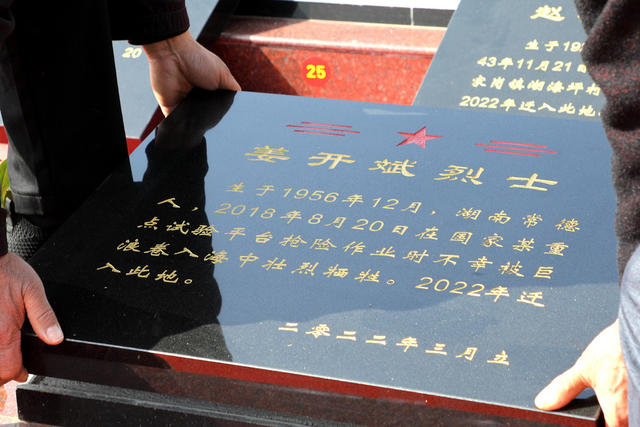 20
25
赵
生于19
43年11月21
家岗镇湖海坪村
2022年迁入此地
姜开斌烈士
生于1956年12月，湖南常德
人，2018年8月20日在国家某重
点试验平台抢险作业时不幸被巨
浪卷入海中壮烈牺牲。2022年迁
入此地。
二〇二二年三月立